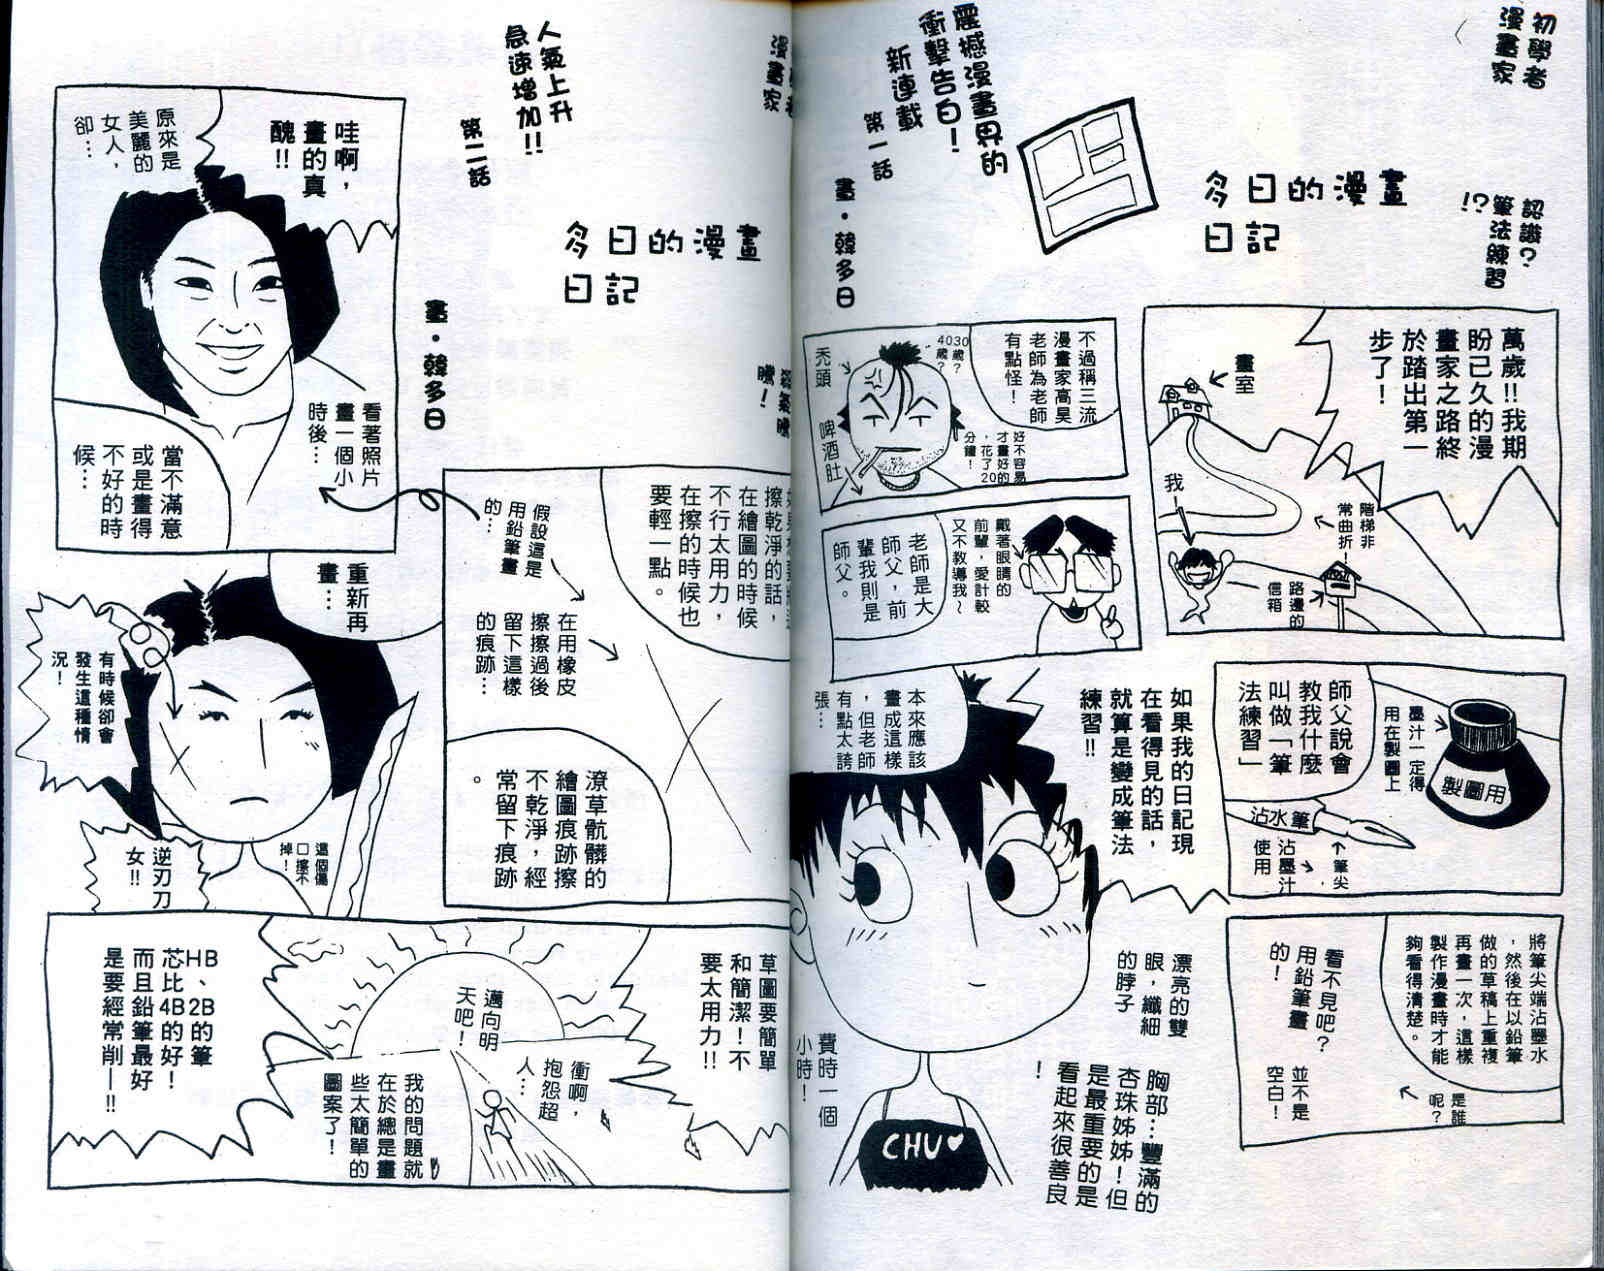 初學者
漫畫家
認識?
筆法練習
!?
多日的漫畫
日記
震撼漫畫界的
衝擊告白!
新連載
第一話
畫・韓多日
萬歲!!我期
盼已久的漫
畫家之路終
於踏出第一
步了!
畫室
我
階梯非
常曲折!
路邊的
信箱
不過稱三流
漫畫家高昊
老師為老師
有點怪!
30
歲?
40
歲?
禿頭
啤酒肚
好不容易
才畫好的
,花了20
分鐘!
戴著眼睛的
前輩,愛計較
又不教導我~
老師是大
師父,前
輩我則是
師父。
師父說會
教我什麼
叫做「筆
法練習」
墨汁一定得
用在製圖上
製圖用
沾水筆
筆尖
沾墨汁
使用
將筆尖端沾墨水
,然後在以鉛筆
做的草稿上重複
再畫一次,這樣
製作漫畫時才能
夠看得清楚。
是誰
呢?
看不見吧?
用鉛筆畫
的!
並不是
空白!
如果我的日記現
在看得見的話,
就算是變成筆法
練習!!
本來應該
畫成這樣
,但老師
有點太誇
張…
漂亮的雙
眼,纖細
的脖子
胸部…豐滿的
杏珠姊姊!但
是最重要的是
看起來很善良
!
費時一個
小時!
CHU♥
漫畫家
人氣上升
急速增加!!
第二話
多日的漫畫
日記
畫・韓多日
哇啊,
畫的真
醜!!
原來是
美麗的
女人,
卻…
看著照片
畫一個小
時後…
當不滿意
或是畫得
不好的時
候…
擦乾淨的話,
在繪圖的時候
不行太用力,
在擦的時候也
要輕一點。
假設這是
用鉛筆畫
的…
在用橡皮
擦擦過後
留下這樣
的痕跡…
潦草骯髒的
繪圖痕跡擦
不乾淨,經
常留下痕跡
。
重新再
畫…
有時候卻會
發生這種情
況!
這個傷
口擦不
掉!
逆刃刀
女!!
草圖要簡單
和簡潔!不
要太用力!!
邁向明
天吧!
衝啊,
抱怨超
人…
我的問題就
在於總是畫
些太簡單的
圖案了!
HB、2B的筆
芯比4B的好!
而且鉛筆最好
是要經常削—!!